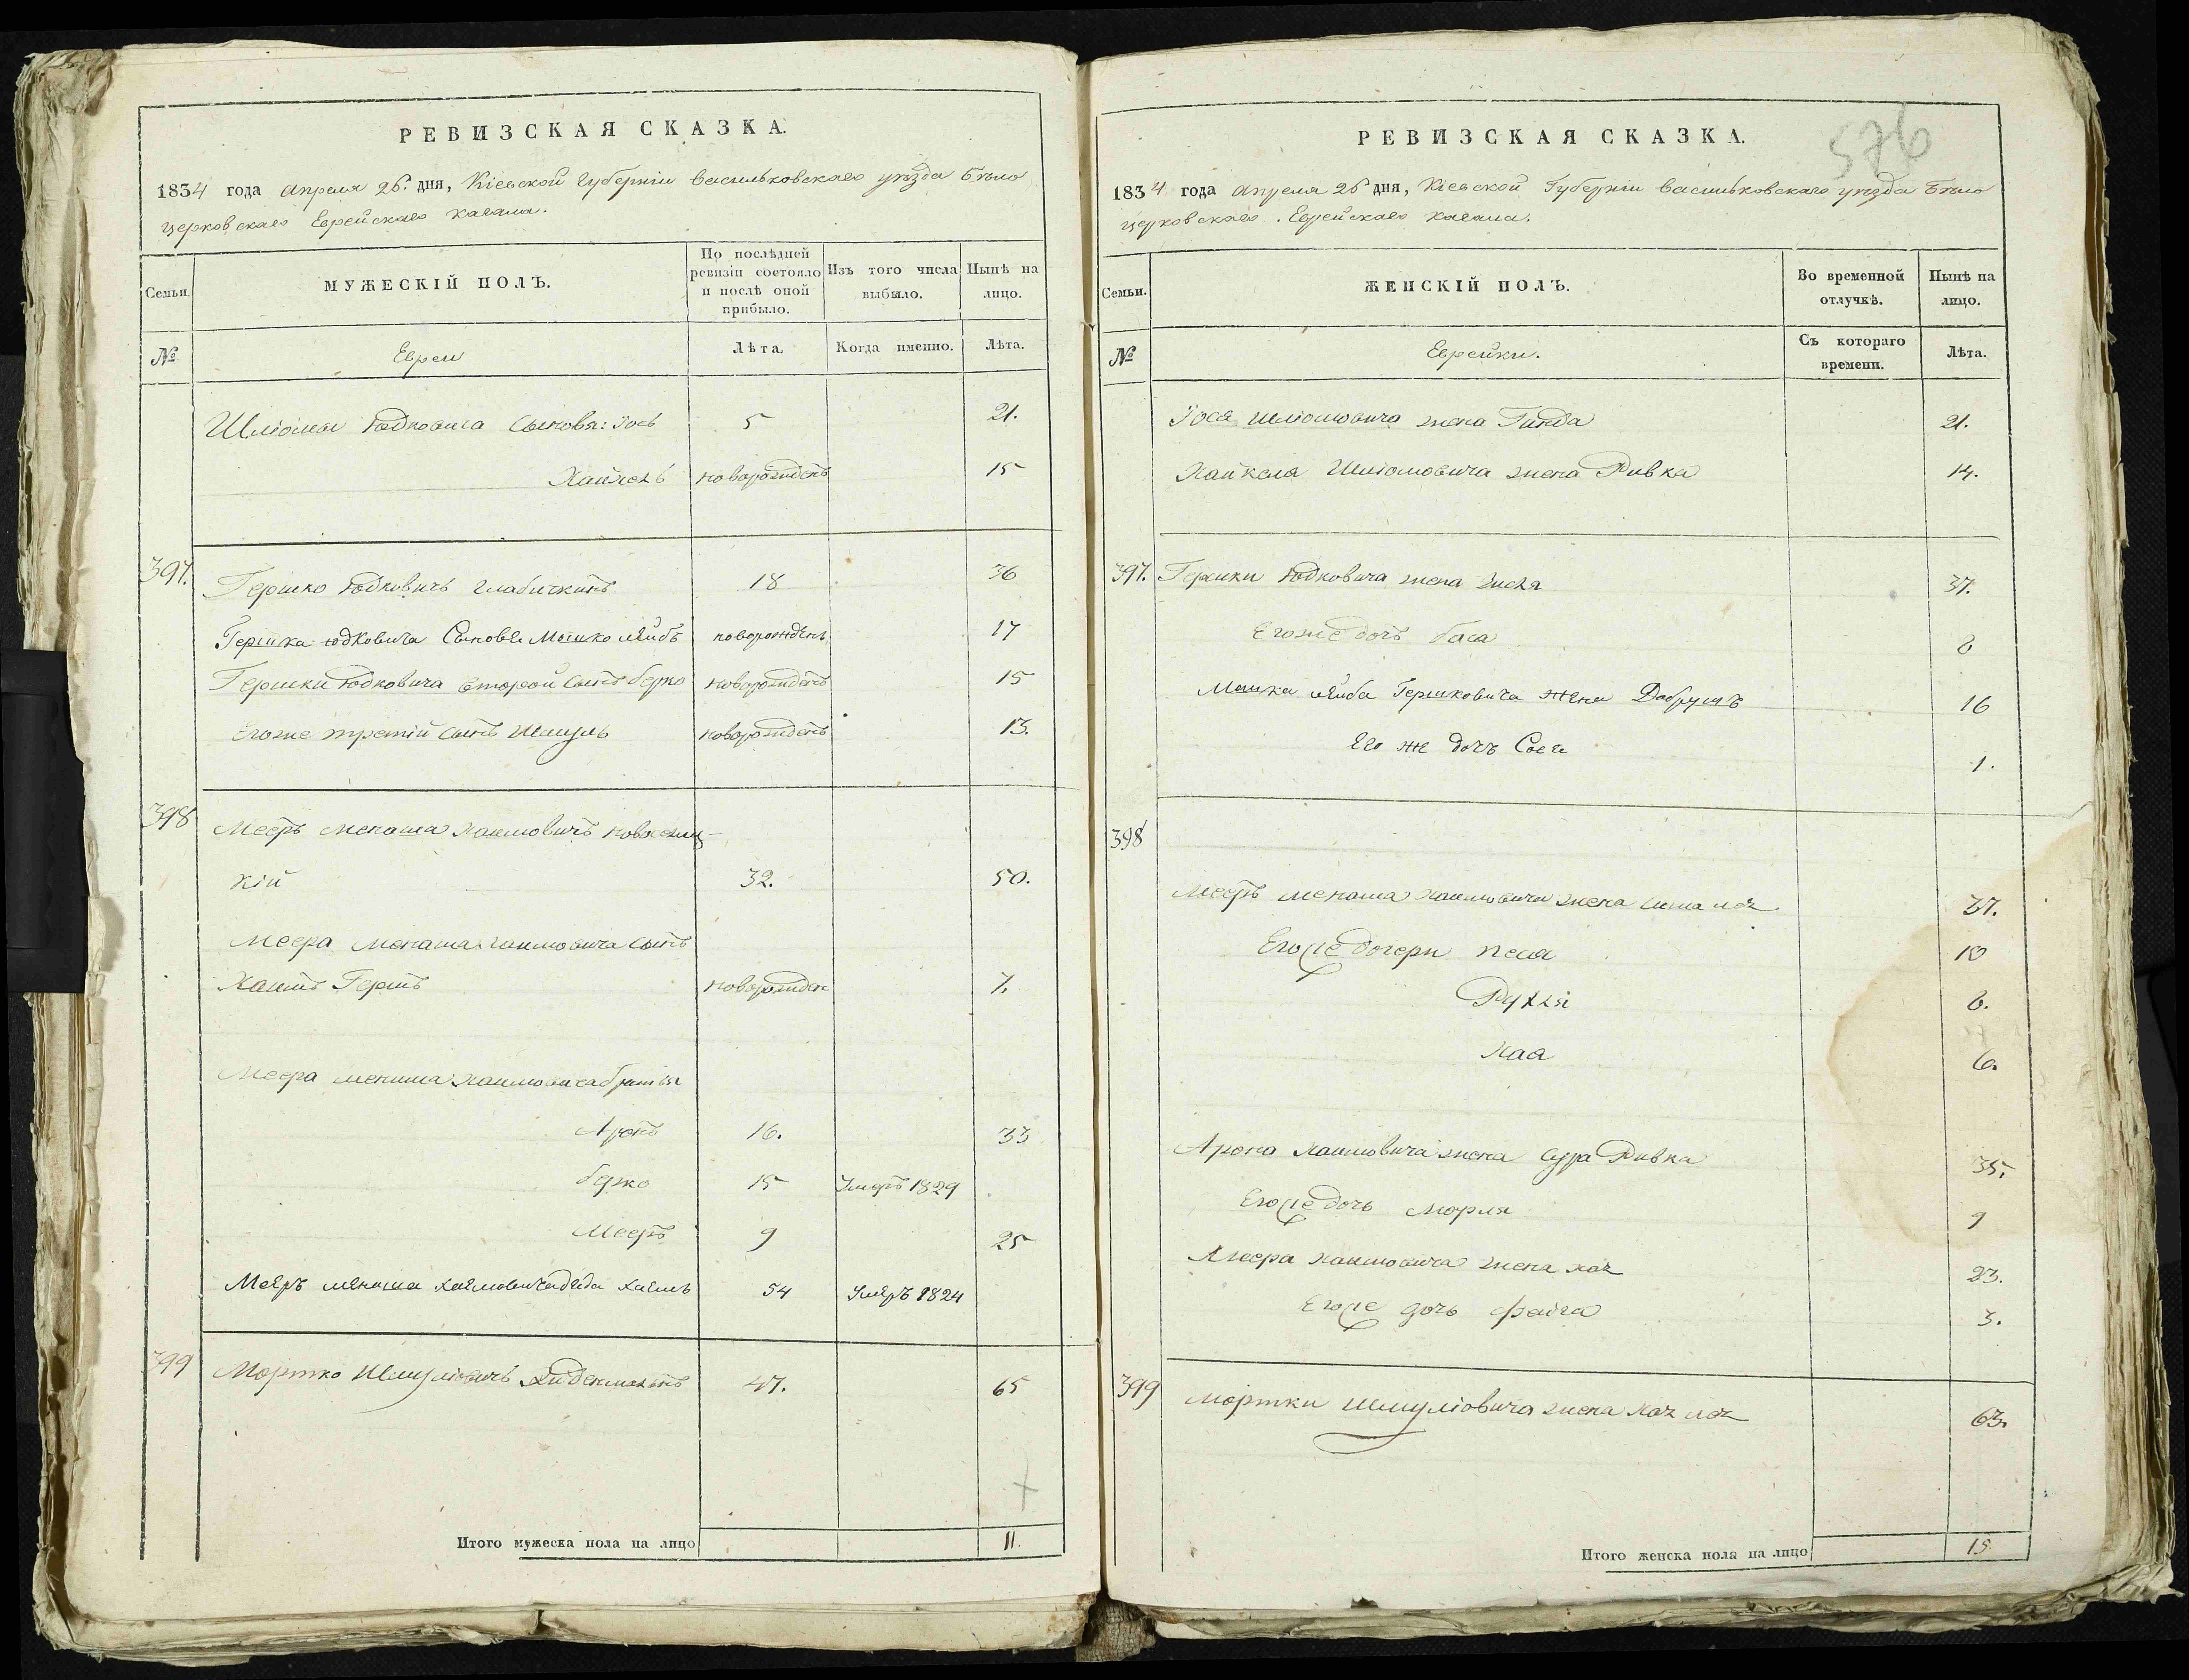 РЕВИЗСКАЯ СКАЗКА.
1834 года Апреля 26. дня, Кіевской Губерніи Васильковскаго уѣзда Бѣло
церковскаго Еврейскаго Кагала.
Семьи.
МУЖЕСКІЙ ПОЛЪ.
По послѣдней ревизіи состояло и послѣ оной прибыло.
Изъ того числа выбыло.
Нынѣ на лицо.
№
Евреи
Лѣта.
Когда именно.
Лѣта.
Шліомы Юдковича сыновя: Іось 5 21.
Хайкель новорожденъ 15
397. Гершко Юдковичъ 18 36
Гершка Юдковича Сыновья Мошко Лейбъ новорожденъ 17
Гершки Юдковича второй сынъ Берко новорожденъ 15
Егоже третій сынъ Шмуль новорожденъ 13.
398 Мееръ Менаша Хаимовичъ
кій 32. 50.
Меера Менаша Хаимовича сынъ
Хаимъ Гершъ новорожден 7.
Меера Менаша Хаимовича братья
Аронъ 16. 33
Берко 15 Умеръ 1829
Мееръ 9 25
Мееръ Менаша Хаимовича деда Хаимъ 54 Умеръ 1824
399 Мортко Шмуліовичъ 47. 65
Итого мужеска пола на лицо 11.
576
РЕВИЗСКАЯ СКАЗКА.
1834 года Апреля 26 дня, Кіевской Губерніи Васильковскаго уѣзда Бѣло
церковскаго Еврейскаго Кагала.
Семьи.
ЖЕНСКІЙ ПОЛЪ.
Во временной отлучкѣ.
Нынѣ на лицо.
№
Еврейки.
Съ котораго времени.
Лѣта.
Іося Шліомовича жена Гинда 21.
Хайкеля Шліомовича жена Ривка 14.
397. Гершки Юдковича жена Зисля 37.
Егоже дочь Бася 8
Мошка Лейба Гершковича жена Добрушъ 16
Его же дочъ Сося 1.
398
Мееръ Менаша Хаимовича жена 37.
Егоже дочери Песя 10
Рухля 8.
Хая 6.
Арона Хаимовича жена Сура Ривка 35.
Егоже дочь Морля 9
Меера Хаимовича жена Хая 23.
Егоже дочь Файга 3.
399 Мортки Шмуліовича жена Хая 63.
Итого женска пола на лицо 15.